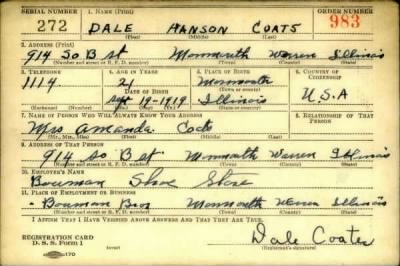 SERIAL NUMBER 1. NAME (Print) ORDER NUMBER
272 DALE HANSON COATS 983
(First) (Middle) (Last)
2. ADDRESS (Print)
914 So B st Monmouth Warren Illinois
(Number and street or R. F. D. number) (Town) (County) (State)
3. TELEPHONE 4. AGE IN YEARS 5. PLACE OF BIRTH 6. COUNTRY OF CITIZENSHIP
1114 21 Monmouth
DATE OF BIRTH (Town or county)
Sept 19-1919 Illinois U.S.A
(Exchange) (Number) (Mo.) (Day) (Yr.) (State or country)
7. NAME OF PERSON WHO WILL ALWAYS KNOW YOUR ADDRESS 8. RELATIONSHIP OF THAT PERSON
Mrs. Amanda Coats
(Mr., Mrs., Miss) (First) (Middle) (Last)
9. ADDRESS OF THAT PERSON
914 So B st Monmouth Warren Illinois
(Number and street or R. F. D. number) (Town) (County) (State)
10. EMPLOYER'S NAME
Bowman Shoe Store
11. PLACE OF EMPLOYMENT OR BUSINESS
Bowman Bros Monmouth Warren Illinois
(Number and street or R. F. D. number) (Town) (County) (State)
I AFFIRM THAT I HAVE VERIFIED ABOVE ANSWERS AND THAT THEY ARE TRUE.
REGISTRATION CARD
D. S. S. Form 1
Dale Coats
(Registrant's signature)